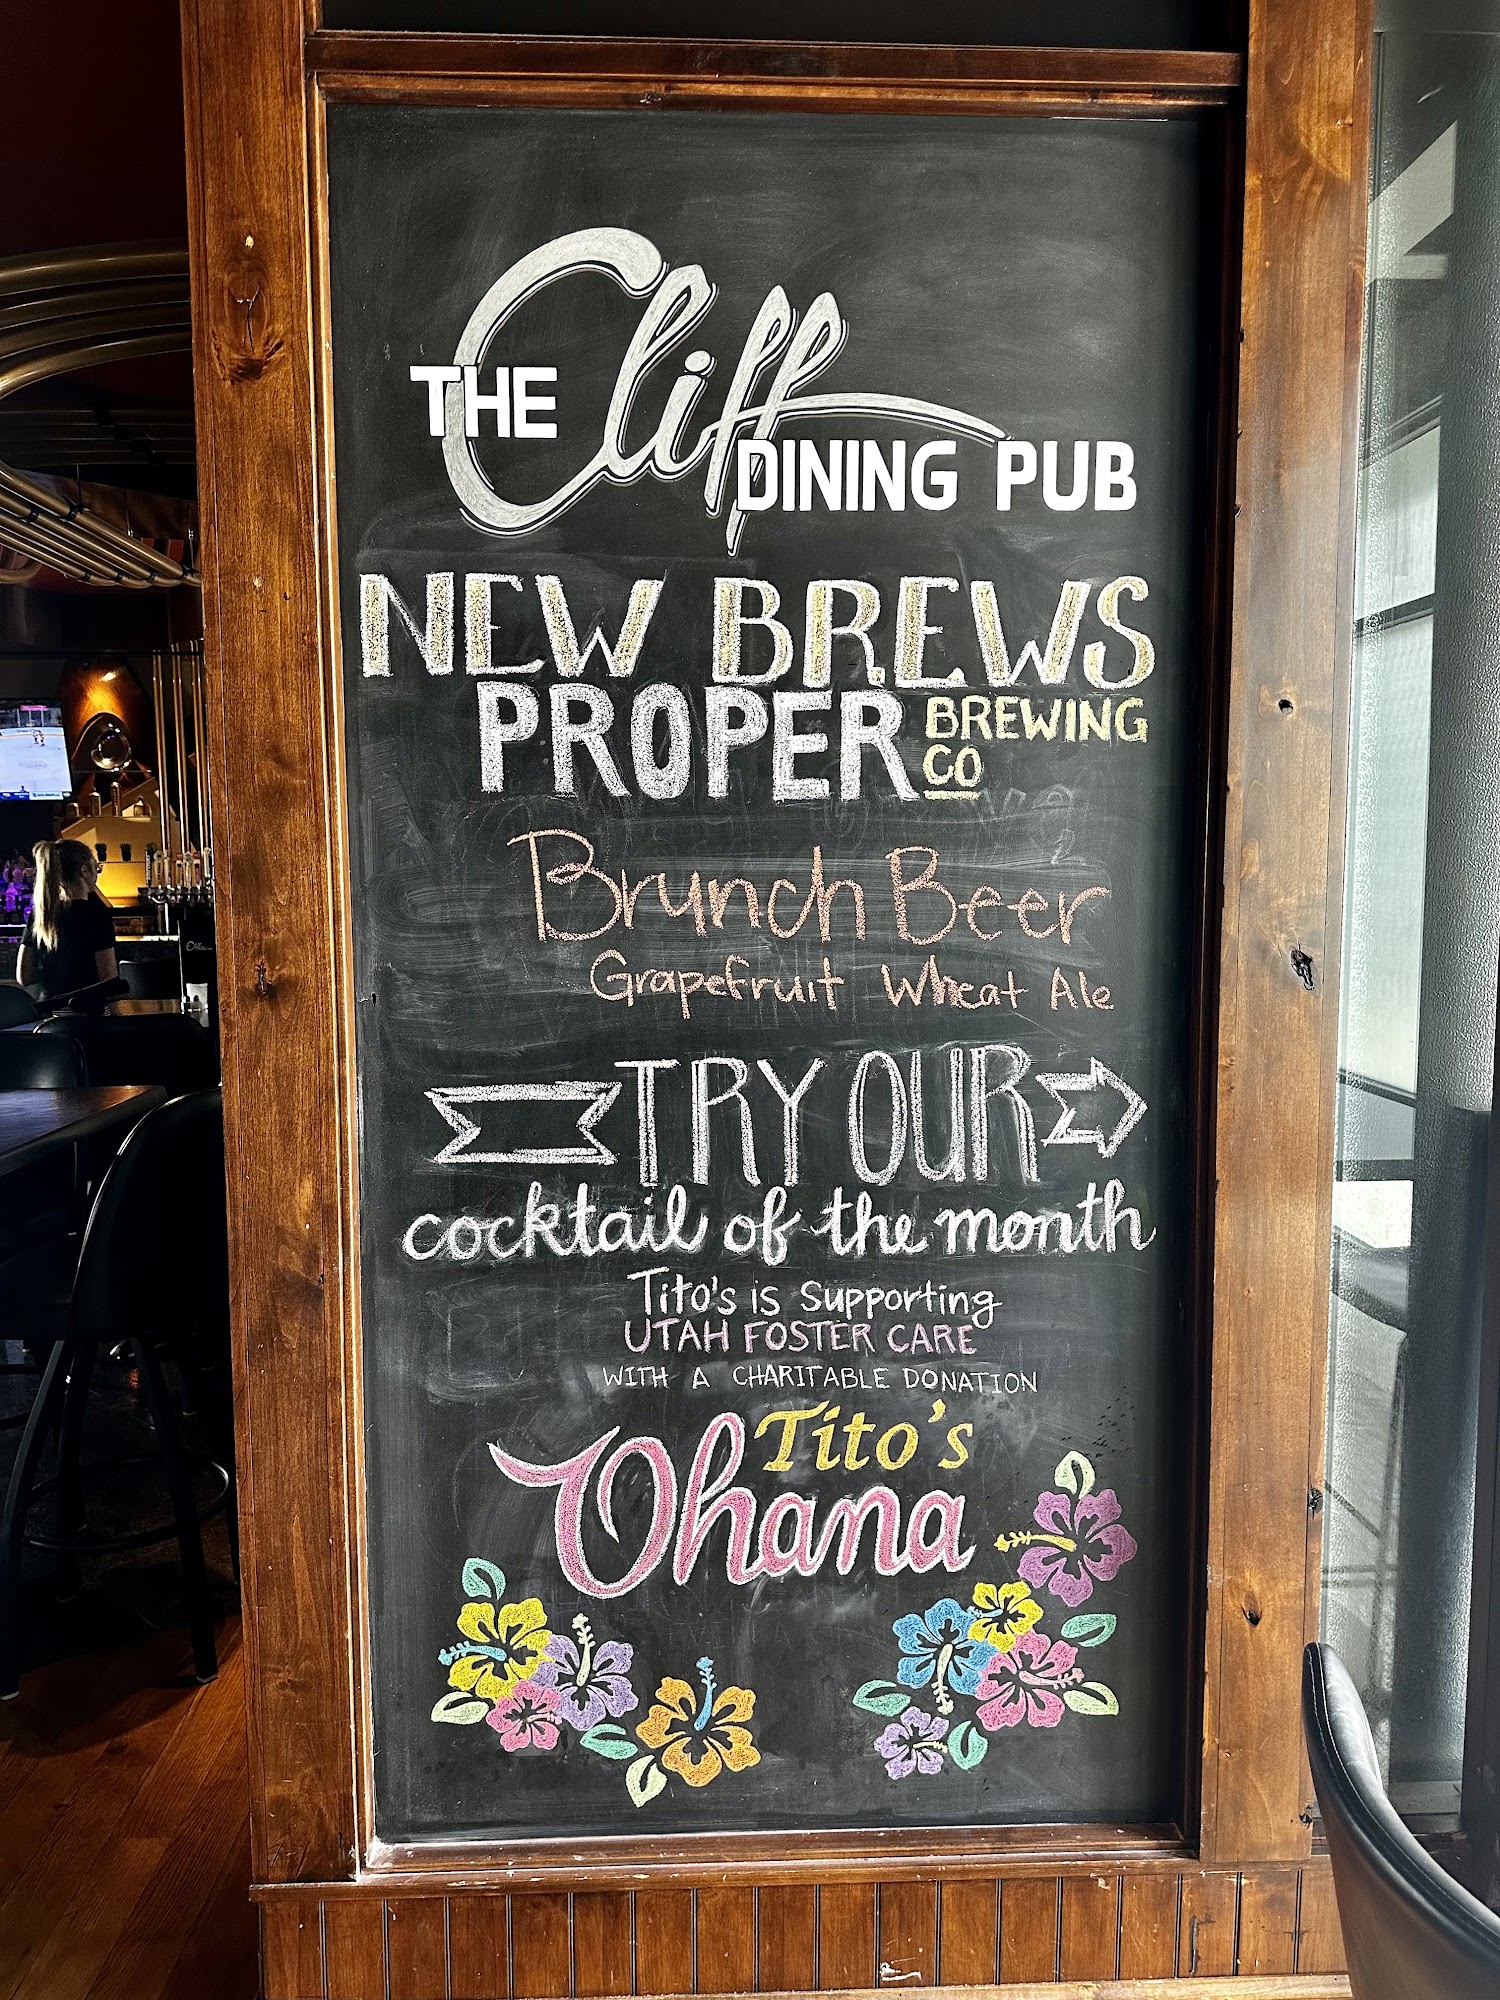 THE Cliff
DINING PUB
NEW BREWS
PROPER BREWING
CO
Brunch Beer
Grapefruit Wheat Ale
TRY OUR
cocktail of the month
Tito's is Supporting
UTAH FOSTER CARE
WITH A CHARITABLE DONATION
Tito's
Ohana